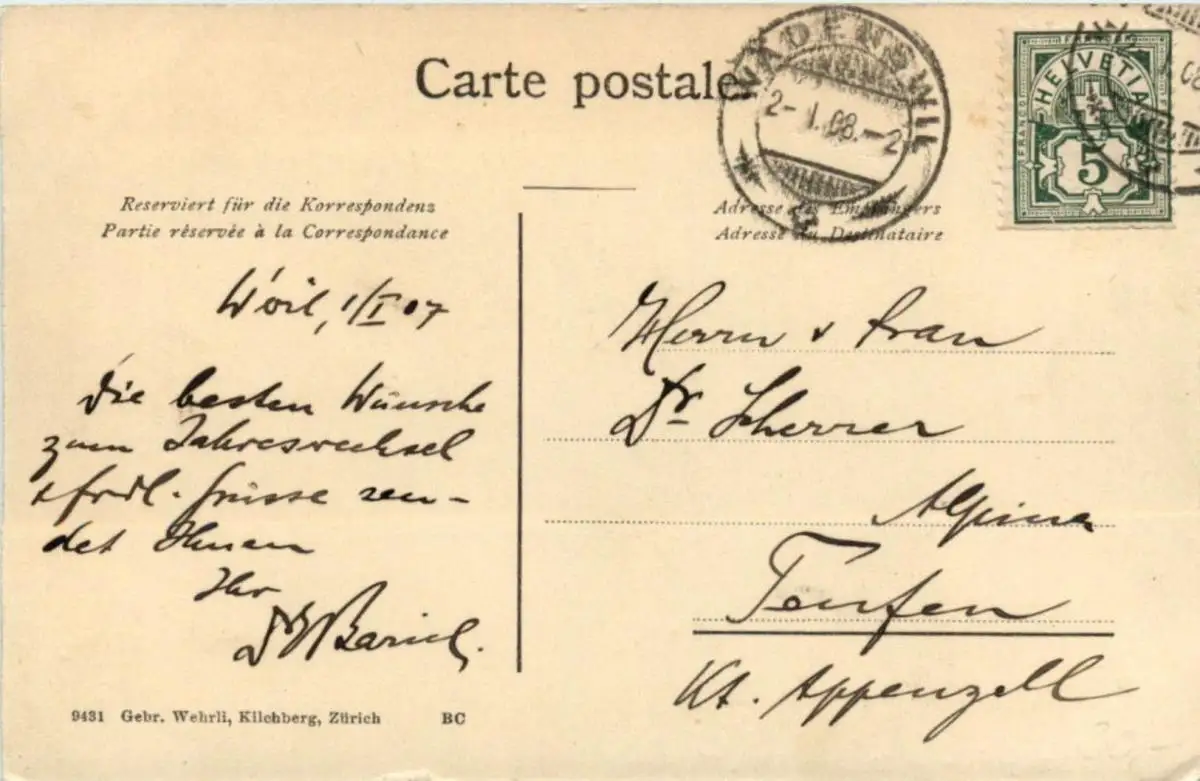 Carte postale
WÄDENSWIL
2-.I.08.-2
FRANCO
HELVETIA
5
08
Reserviert für die Korrespondenz
Partie réservée à la Correspondance
Adresse des Empfängers
Adresse du Destinataire
W'wil, 1/I 07
Die besten Wünsche
zum Jahreswechsel
& frdl. Grüsse sen-
det Ihnen
Ihr
Herrn & Frau
Dr Scherrer
Alpina
Teufen
Kt. Appenzell
9431 Gebr. Wehrli, Kilchberg, Zürich BC